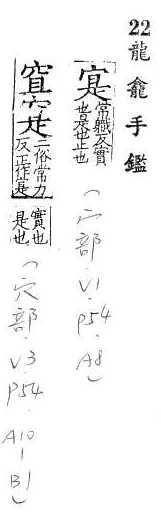 22 龍龕手鑑
寔 常職反實
也是也正也
(宀部.V1.P54.A8)
二俗常力
反正作寔
實也
是也
(穴部.V3.P54.A10-B1)